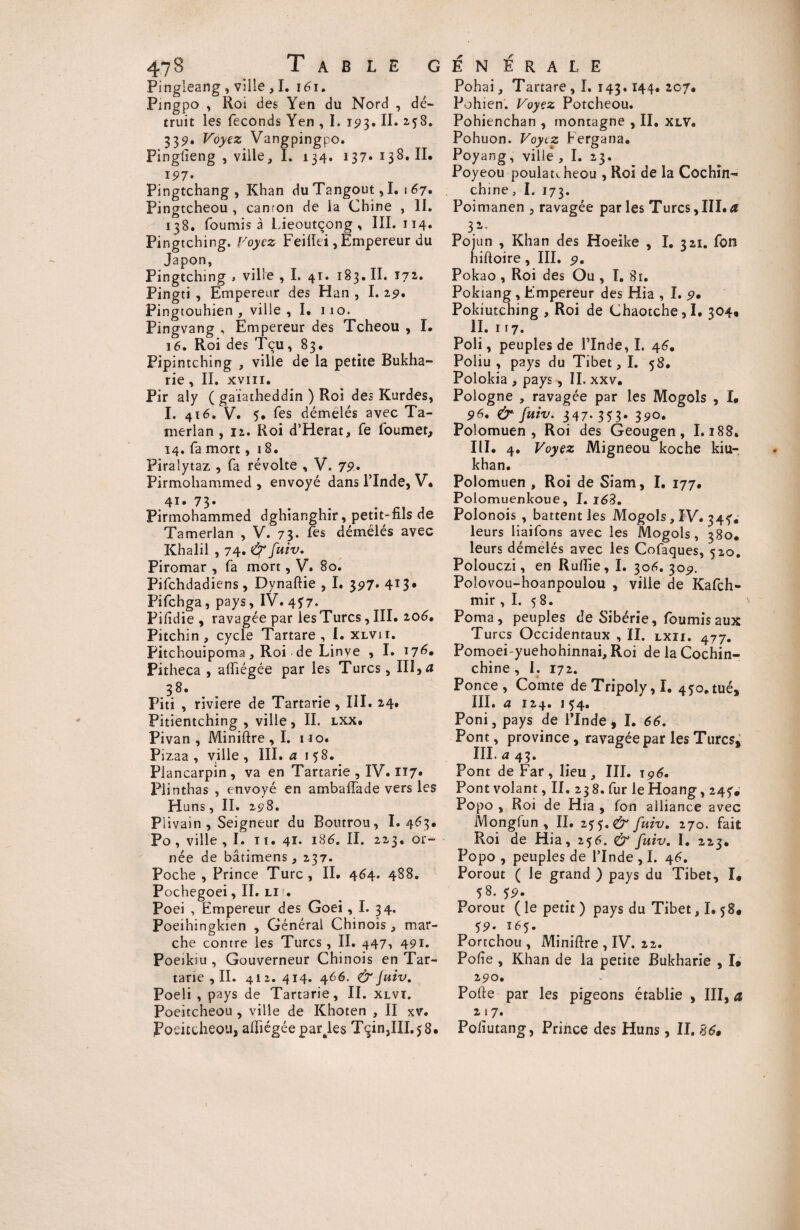 478 TABLE GÉNÉRALE
Pingleang, ville, I. 161.
Pingpo , Roi des Yen du Nord , dé-
truit les seconds Yen , I. 193. II. 258.
339. Voyez Vangpingpo.
Pingsieng , ville, I. 134. 137. 138. II.
197.
Pingtchang , Khan du Tangout, I. 167.
Pingtcheou , canton de la Chine , II.
138. soumis à Lieoutçong, III. 114.
Pingtching. Voyez Feissei, Empereur du
Japon,
Pingtching , ville , I. 41. 183. II. 172.
Pingti , Empereur des Han , I. 29.
Pingtouhien , ville , I. 110.
Pingvang , Empereur des Tcheou , I.
16. Roi des Tçu, 83.
Pipintching , ville de la petite Bukha-
rie , II. XVIII.
Pir aly ( gaïatheddin ) Roi des Kurdes,
I. 416. V. 5. ses démêlés avec Ta-
merlan , 12. Roi d'Herat, se soumet,
14. sa mort , 18.
Piralytaz , sa révolte , V. 79.
Pirmohammed , envoyé dans l'Inde, V.
41. 73.
Pirmohammed dghianghir, petit-fils de
Tamerlan , V. 73. ses démêlés avec
Khalil , 74. & suiv.
Piromar , sa mort , V. 80.
Pischdadiens , Dynastie , I. 397. 413.
Pischga, pays, IV. 457.
Pisidie , ravagée par les Turcs, III. 206.
Pitchin , cycle Tartare , I. XLVII.
Pitchouipoma , Roi de Linye , I. 176.
Pitheca , assiégée par les Turcs , III, a
38.
Piti , riviere de Tartarie , III. 24.
Pitientching , ville , II. LXX.
Pivan , Ministre , I. 110.
Pizaa , ville , III. a 158.
Plancarpin , va en Tartarie , IV. 117.
Plinthas , envoyé en ambassade vers les
Huns, II. 298.
Plivain , Seigneur du Boutrou, I. 463.
Po , ville , I. 11. 41. 186. II. 223. or-
née de bâtimens , 237.
Poche , Prince Turc , II. 464. 488.
Pochegoei , II. LI .
Poei , Empereur des Goei , I. 34.
Poeihingkien , Général Chinois , mar-
che contre les Turcs , II. 447, 491.
Poeikiu , Gouverneur Chinois en Tar-
tarie , II. 412. 414. 466. & suiv.
Poeli , pays de Tartarie, II. XLVI.
Poeitcheou , ville de Khoten , II XV.
Poeitcheou, assiégée par les Tçin, III. 58.
Pohai , Tartare , I. 143. 144. 207.
Pohien. Voyez Potcheou.
Pohienchan , montagne , II. XLV.
Pohuon. Voyez Fergana.
Poyang, ville , I. 23.
Poyeou poulatcheou , Roi de la Cochin-
chine, I. 173.
Poimanen , ravagée par les Turcs, III. a
32.
Pojun , Khan des Hoeike , I. 321. son
histoire , III. 9.
Pokao , Roi des Ou , I. 81.
Pokiang , Empereur des Hia , I. 9.
Pokiutching , Roi de Chaotche, I. 304.
II. 117.
Poli , peuples de l'Inde, I. 46.
Poliu , pays du Tibet, I. 58.
Polokia , pays, II. XXV.
Pologne , ravagée par les Mogols , I.
96. & suiv. 347. 353. 390.
Polomuen , Roi des Geougen , I. 188.
III. 4. Voyez Migneou koche kiu-
khan.
Polomuen , Roi de Siam, I. 177.
Polomuenkoue, I. 168.
Polonois , battent les Mogols, IV. 345.
leurs liaisons avec les Mogols, 380.
leurs démêlés avec les Cosaques, 520.
Polouczi, en Russie, I. 306. 309.
Polovou-hoanpoulou , ville de Kasch-
mir , I. 58.
Poma , peuples de Sibérie, soumis aux
Turcs Occidentaux , II. LXII. 477.
Pomoei-yuehohinnai, Roi de la Cochin-
chine , I. 172.
Ponce , Comte de Tripoly, I. 450. tué,
III. a 124. 154.
Poni , pays de l'Inde , I. 66.
Pont , province , ravagée par les Turcs,
III. a 43.
Pont de Far , lieu , III. 196.
Pont volant, II. 238. sur le Hoang, 245.
Popo , Roi de Hia , son alliance avec
Mongsun , II. 255. & suiv. 270. fait
Roi de Hia, 256. & suiv. I. 223.
Popo , peuples de l'Inde , I. 46.
Porout ( le grand ) pays du Tibet, I.
58. 59.
Porout ( le petit ) pays du Tibet, I. 58.
59. 165.
Portchou , Ministre , IV. 22.
Posie , Khan de la petite Bukharie , I.
290.
Poste par les pigeons établie , III, a
217.
Posiutang, Prince des Huns , II. 86.